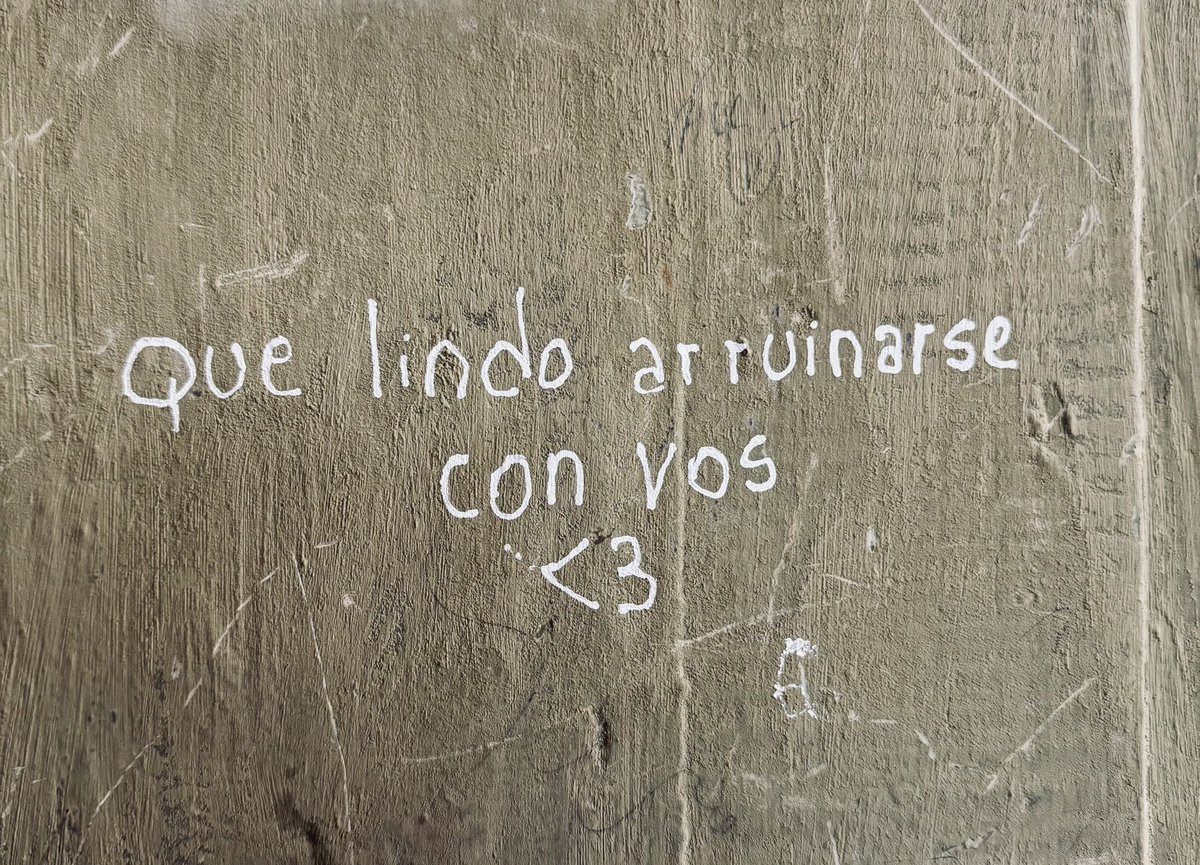 Que lindo arruinarse
con vos
<3